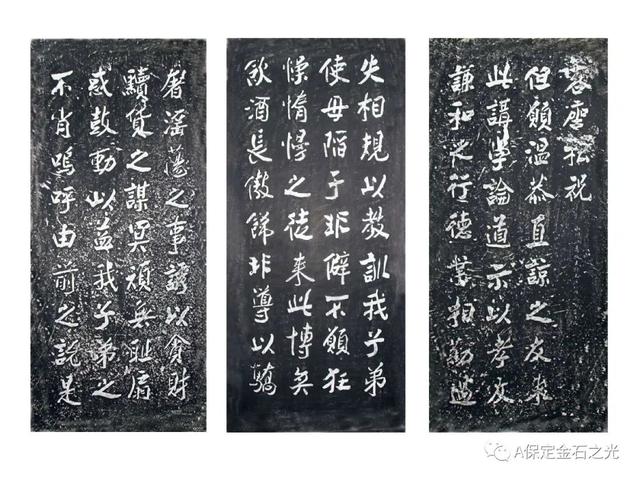 客坐私祝
但願溫恭直諒之友来
此講學論道示以孝友
謙和之行德業相勸過
失相規以教訓我子弟
使毋陷于非僻不願狂
懆惰慢之徒来此博奕
飲酒長傲飾非導以驕
奢滛蕩之事誘以貪財
黷貨之謀冥頑無耻扇
惑鼓動以益我子弟之
不肖嗚呼由前之說是
A保定金石之光